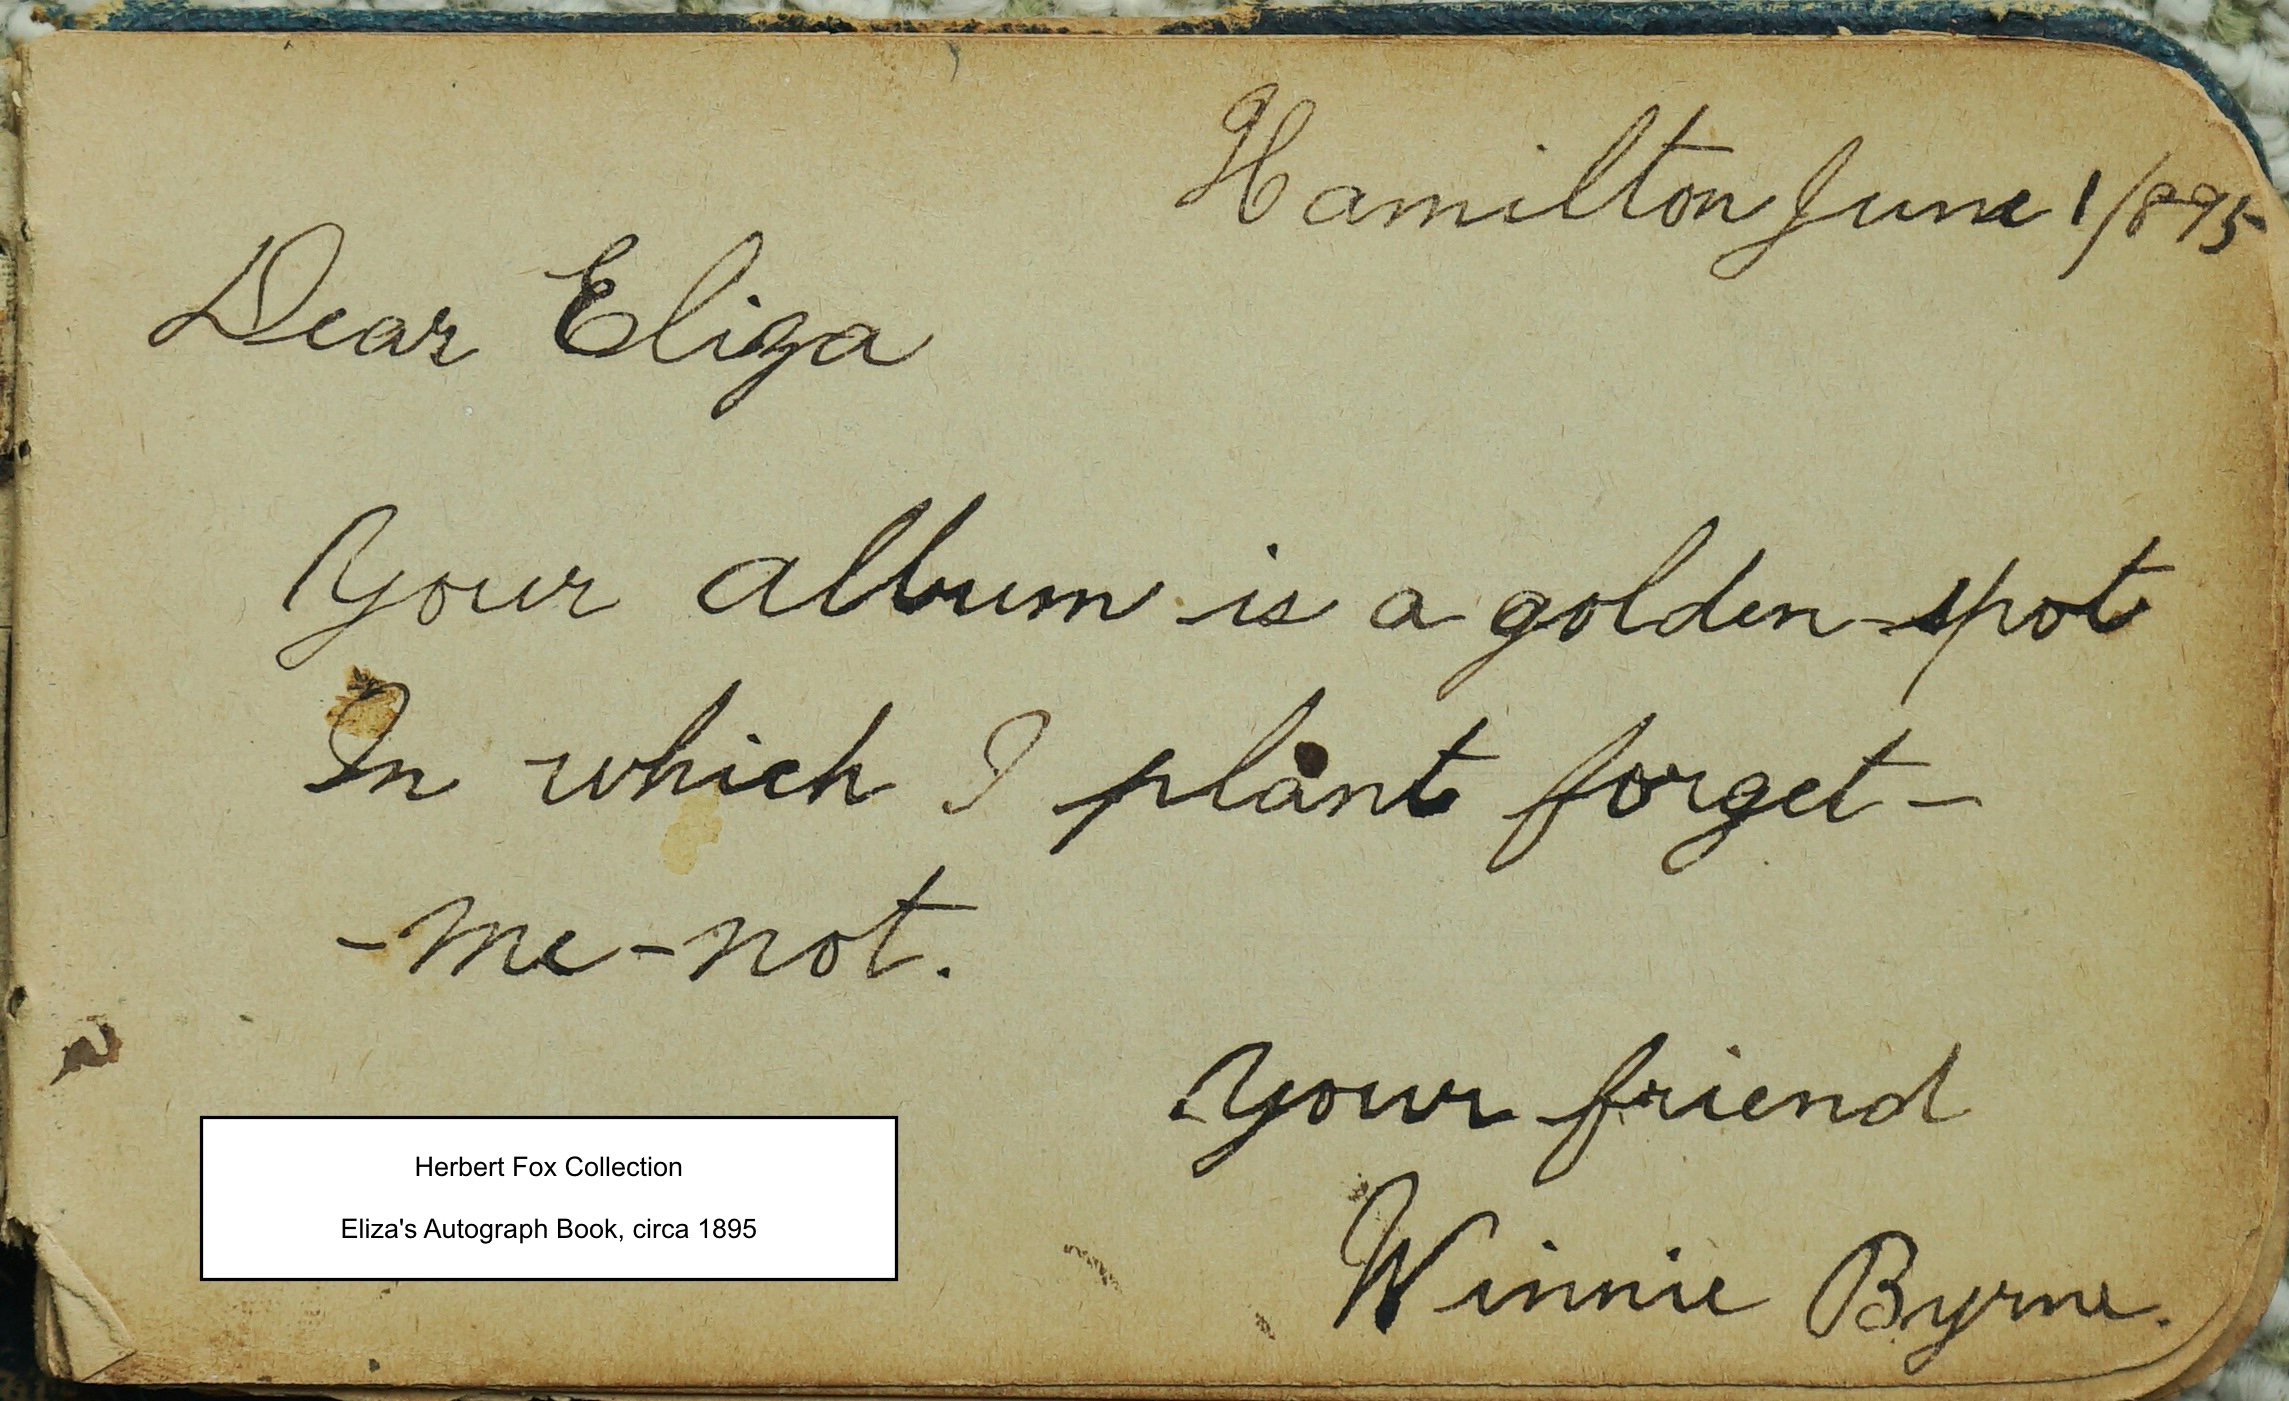 Hamilton June 1/895
Dear Eliza
Your album is a golden spot
In which I plant forget-
-me-not.
Your friend
Winnie Byrne.
Herbert Fox Collection
Eliza's Autograph Book, circa 1895